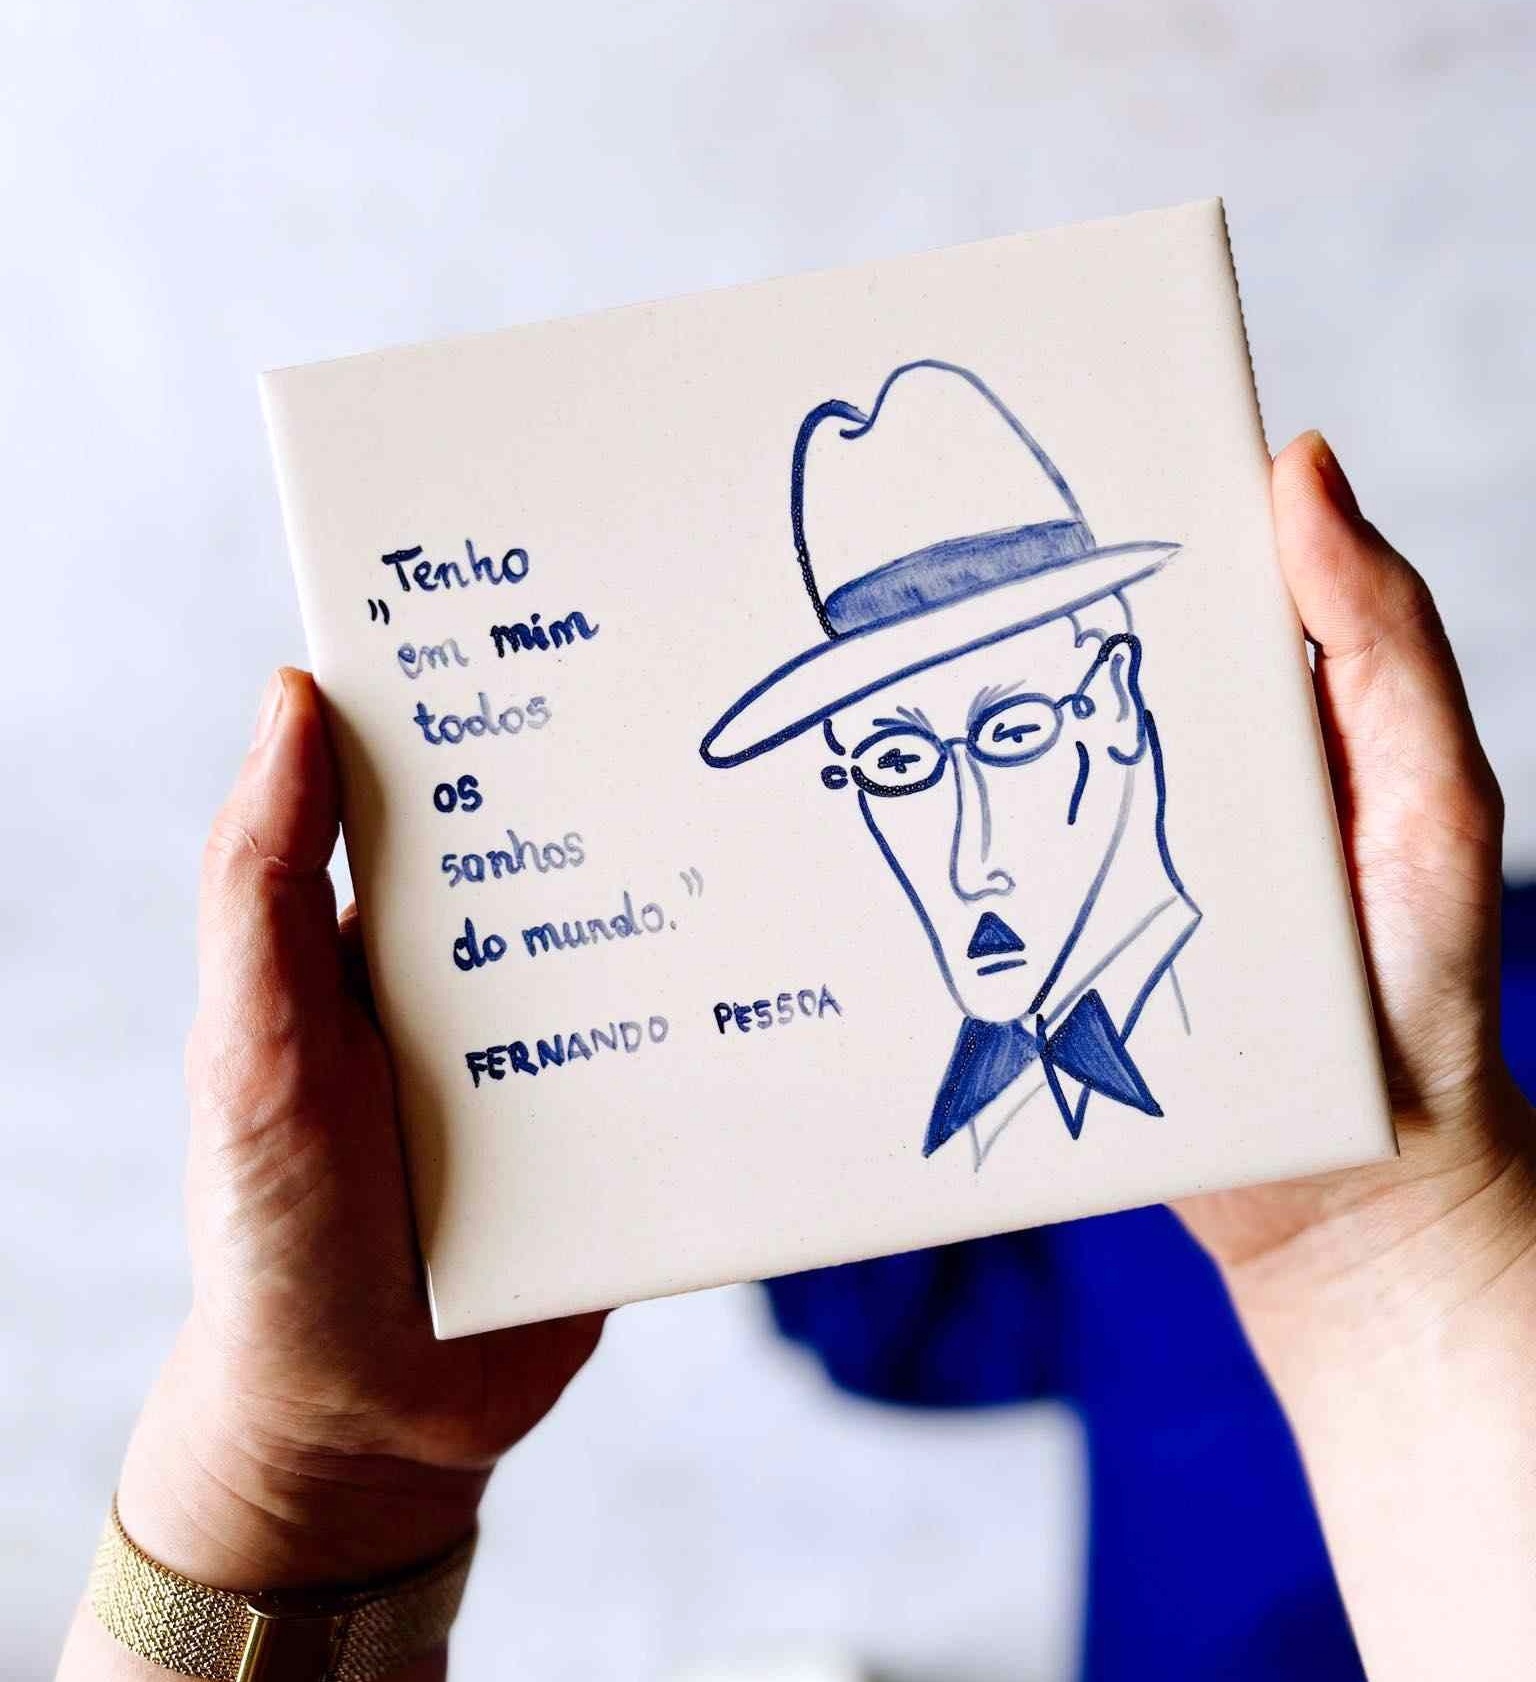 „Tenho
em mim
todos
os
sonhos
do mundo.”
FERNANDO PESSOA